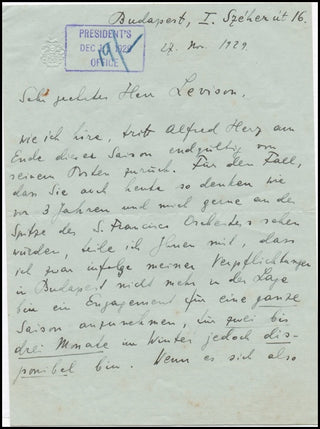 Budapest, I. Széher út 16.
PRESIDENT'S
DEC 1929
OFFICE
27. Nov. 1929.
Sehr geehrter Herr Levison.
Wie ich höre, tritt Alfred Herz am
Ende dieser Saison endgültig von
seinem Posten zurück. Für den Fall,
dass Sie auch heute so denken wie
vor 3 Jahren und mich gerne an der
Spitze des S. Francisco Orchesters sehen
würden, teile ich Ihnen mit, dass
ich zwar infolge meiner Verpflichtungen
in Budapest nicht mehr in der Lage
bin ein Engagement für eine ganze
Saison anzunehmen, für zwei bis
drei Monate im Winter jedoch dis-
ponibel bin. Wenn es sich also